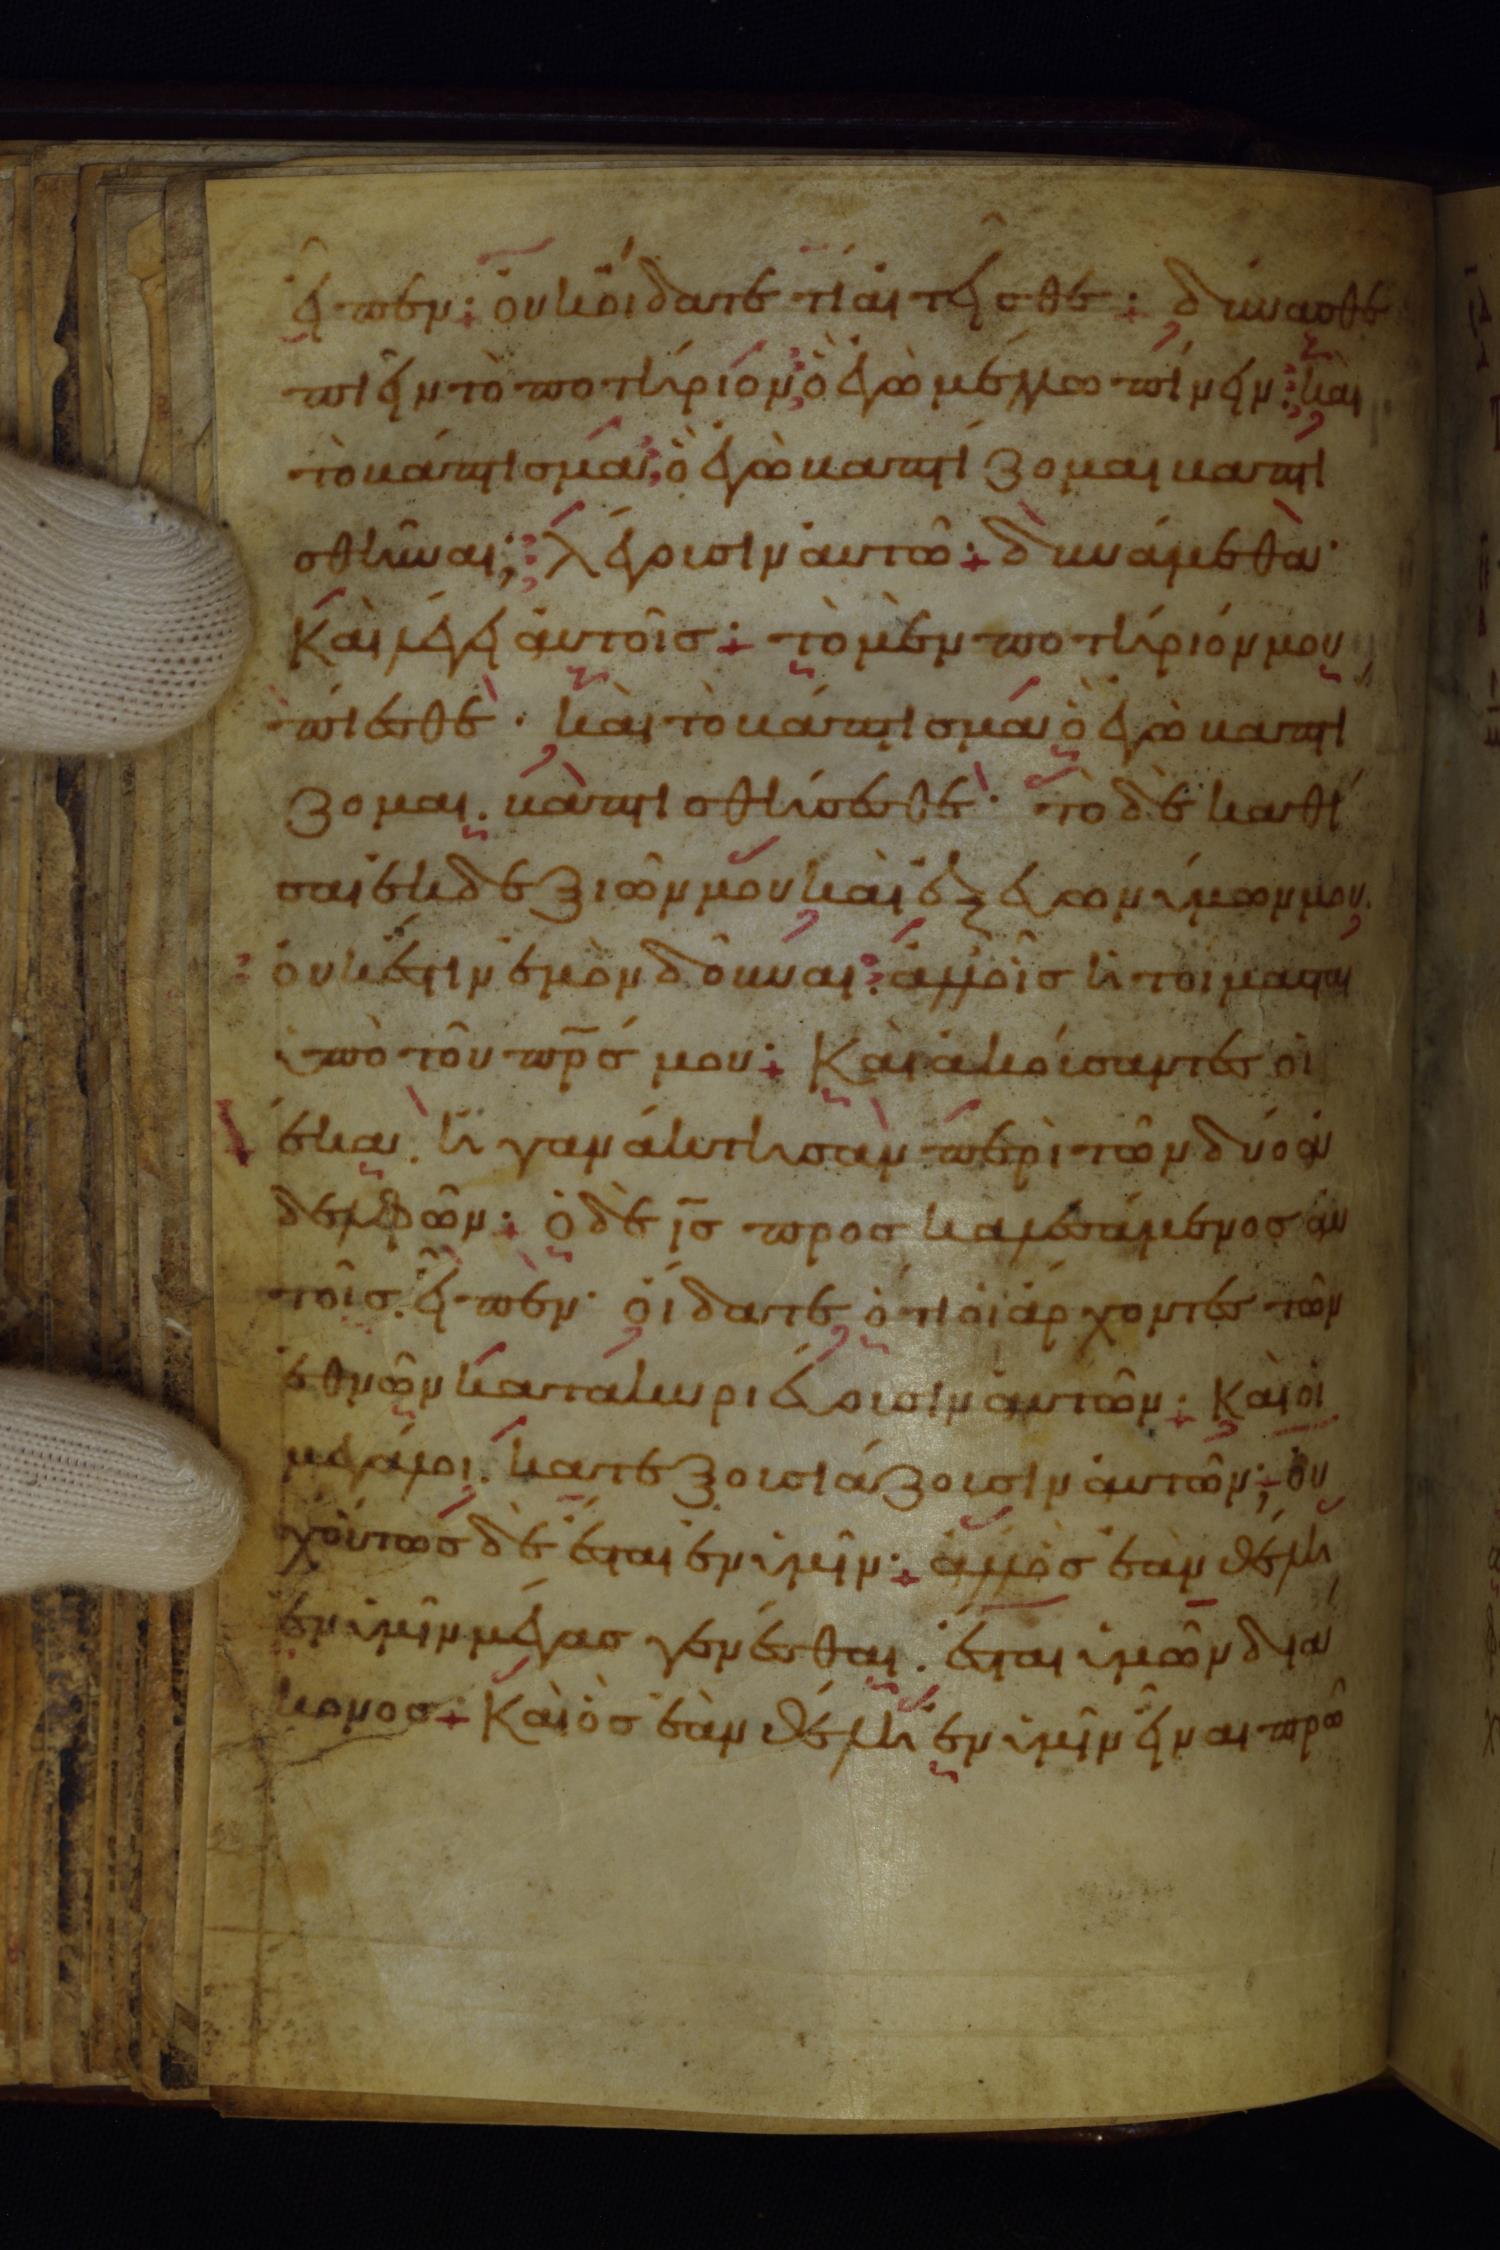 εἶπεν· οὐκ οἴδατε τί αἰτεῖσθε· δύνασθε
πιεῖν τὸ ποτήριον ὃ ἐγὼ μέλλω πίνειν· καὶ
τὸ βάπτισμα ὃ ἐγὼ βαπτίζομαι βαπτι
σθῆναι; λέγουσιν αὐτῶ· δυνάμεθα·
Καὶ λέγει αὐτοῖς· τὸ μὲν ποτήριόν μου
πίεσθε· καὶ τὸ βάπτισμα ὃ ἐγὼ βαπτί
ζομαι. βαπτισθήσεσθε· τὸ δὲ καθί
σαι ἐκ δεξιῶν μου καὶ ἐξ εὐωνύμων μου.
οὐκ ἔστιν ἐμὸν δοῦναι· ἀλλ' οἷς ἡτοίμασται
ὑπὸ τοῦ πρσ μου· Καὶ ἀκούσαντες οἱ
δέκα. ἠγανάκτησαν περὶ τῶν δύο ἀ
δελφῶν· ὁ δὲ ισ προσκαλεσάμενος αὐ
τοῖς. εἶπεν· οἴδατε ὅτι οἱ ἄρχοντες τῶν
ἐθνῶν κατακυριεύουσιν αὐτῶν· Καὶ οἱ
μεγάλοι. κατεξουσιάζουσιν αὐτῶν· οὐ
χ οὕτως δὲ ἔσται ἐν ὑμῖν· ἀλλ' ὃς ἐὰν θέλη
ἐν ὑμῖν μέγας γενέσθαι. ἔσται ὑμῶν διά
κονος· Καὶ ὃς ἐὰν θέλη ἐν ὑμῖν εἶναι πρῶ